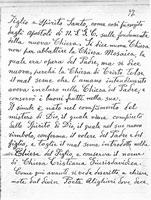 77
Figlio e Spirito Santo, come così furono
dagli Apostoli di N. S. G. C. sulle fondamenta
della nuova Chiesa. Se dice nuova Chiesa
non per abbattere la Chiesa Mosaica, la
quale era opera del Padre, ma si dice
nuova, perchè la Chiesa di Cristo tolse
il mal seme che l'umano
aveva incluso nella Chiesa del Padre, e
conservò i buoni patti nella sua.
Il simile è nato nel compimento del
mistero di Dio, il quale viene compiuto
dallo Spirito di Dio, il quale nel suo nuovo
simbolo, conferma il volere del Padre e del
figlio, e taglie il mal seme introdotto nella
Chiesa del Figlio, e conserva il nome
di Chiesa Cristiana Giurisdavidica.
Come qui avanti si vede descritto a chiara
nota, dal Divin Poeta Alighieri Dove dice.